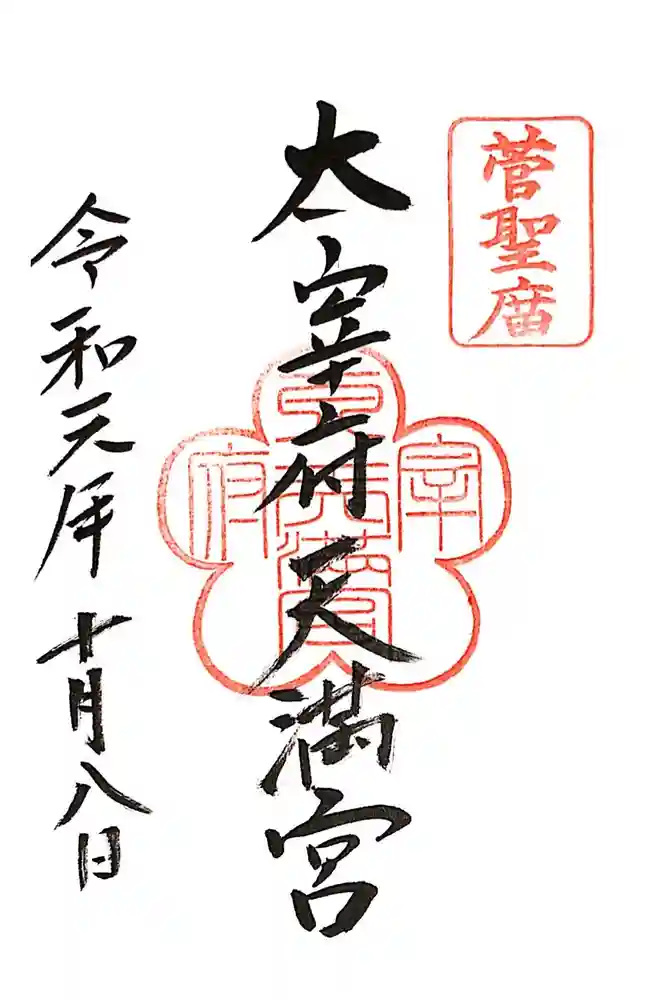 菅聖廟
太宰府天満宮
令和元年十月八日